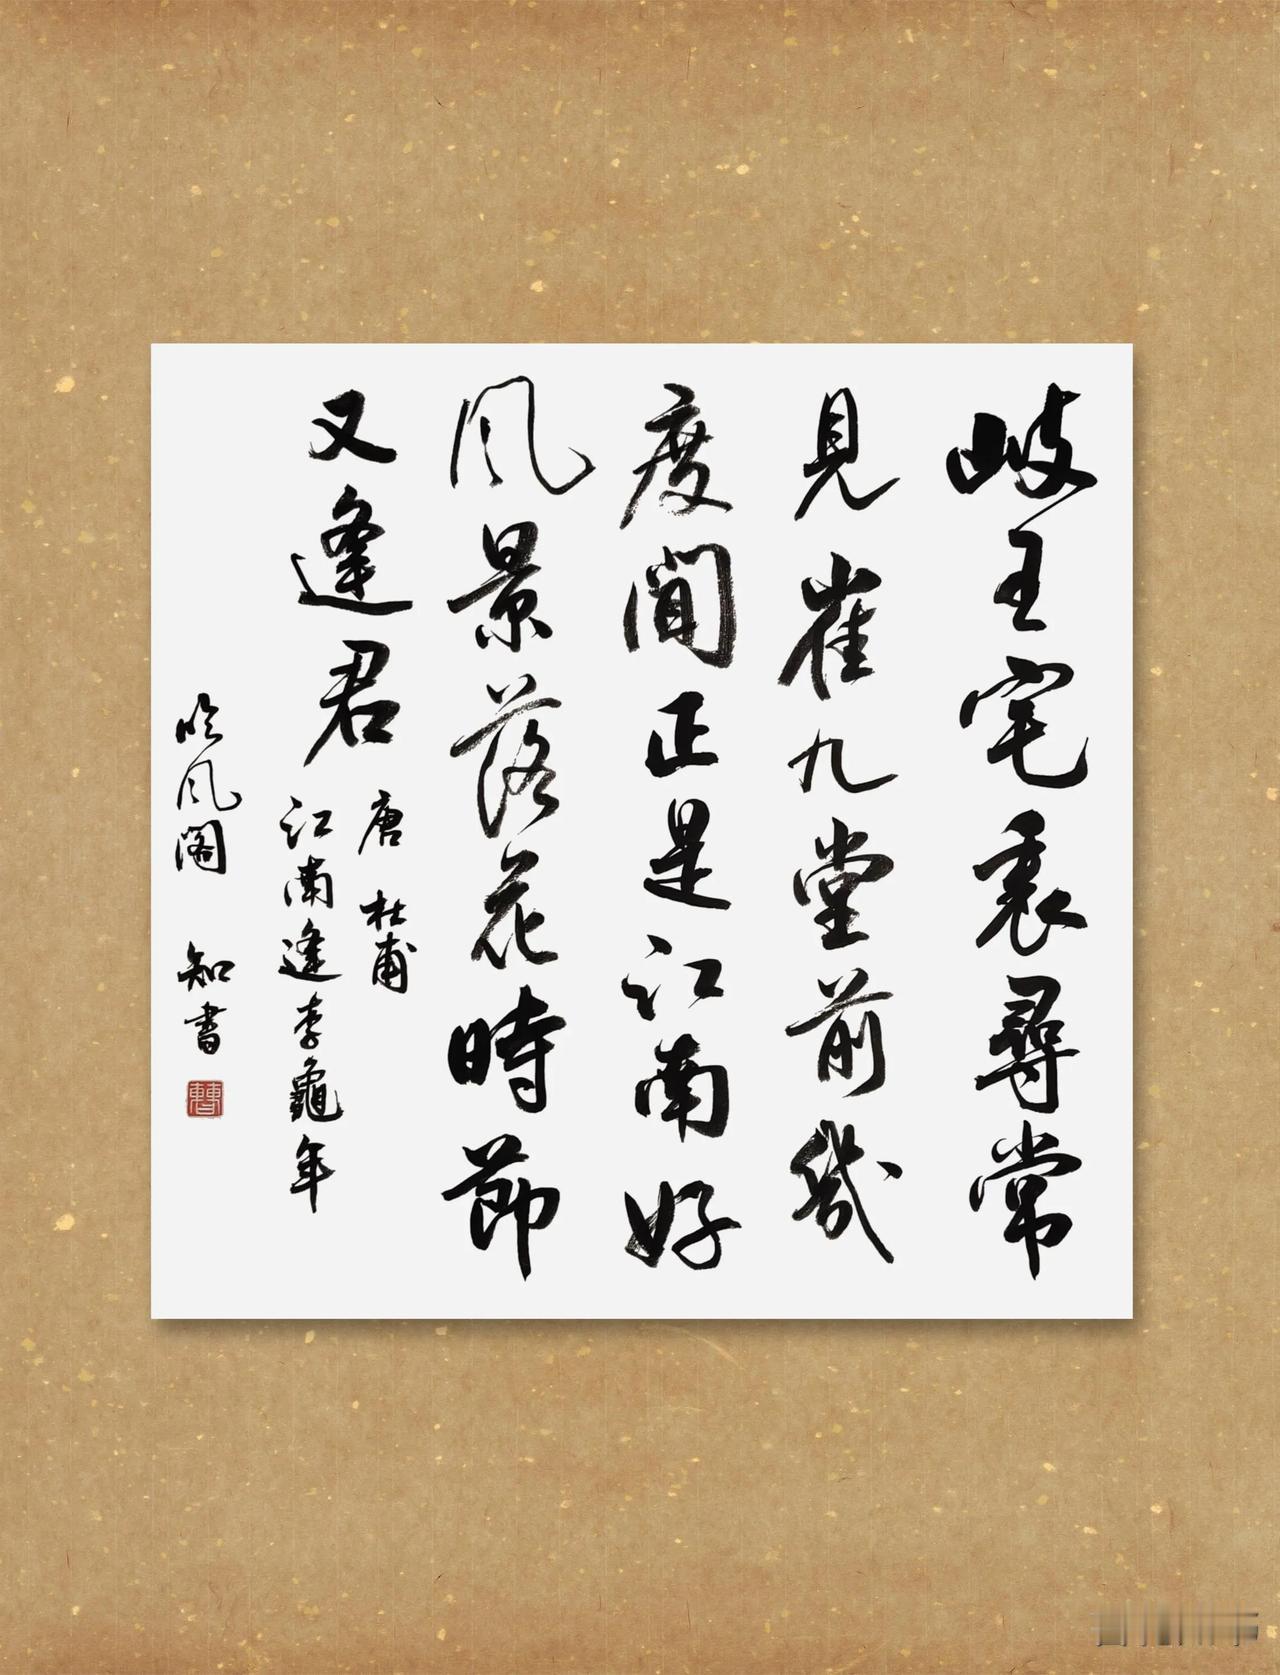 岐王宅裏尋常
見崔九堂前幾
度聞正是江南好
風景落花時節
又逢君
唐 杜甫
江南逢李龜年
吟風閣 知書